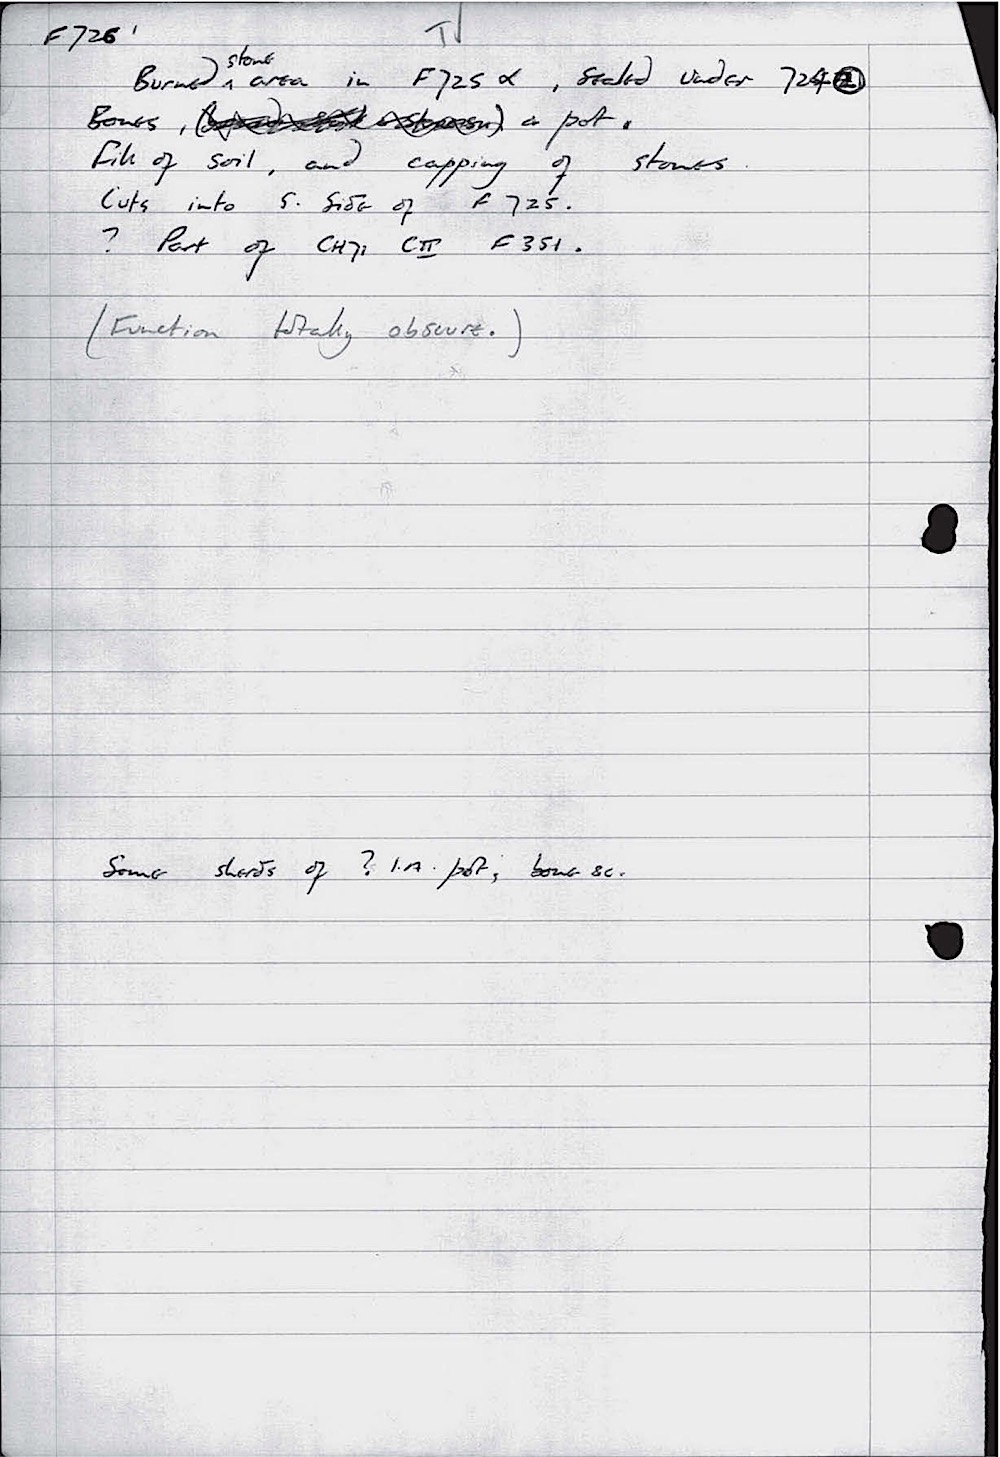 F726
Burned stone area in F725 α , Sealed under 724 ②
Bones , a pot.
Fill of soil, and capping of stones.
Cuts into S. side of F 725.
? Part of CH71 CII F351.
(Function totally obscure.)
Some sherds of ? I.A. pot; bone &c.